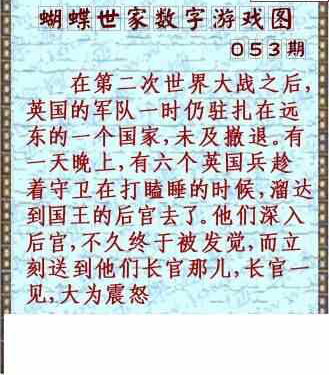 蝴蝶世家数字游戏图
053期
在第二次世界大战之后,
英国的军队一时仍驻扎在远
东的一个国家,未及撤退。有
一天晚上,有六个英国兵趁
着守卫在打瞌睡的时候,溜达
到国王的后官去了。他们深入
后官,不久终于被发觉,而立
刻送到他们长官那儿,长官一
见,大为震怒